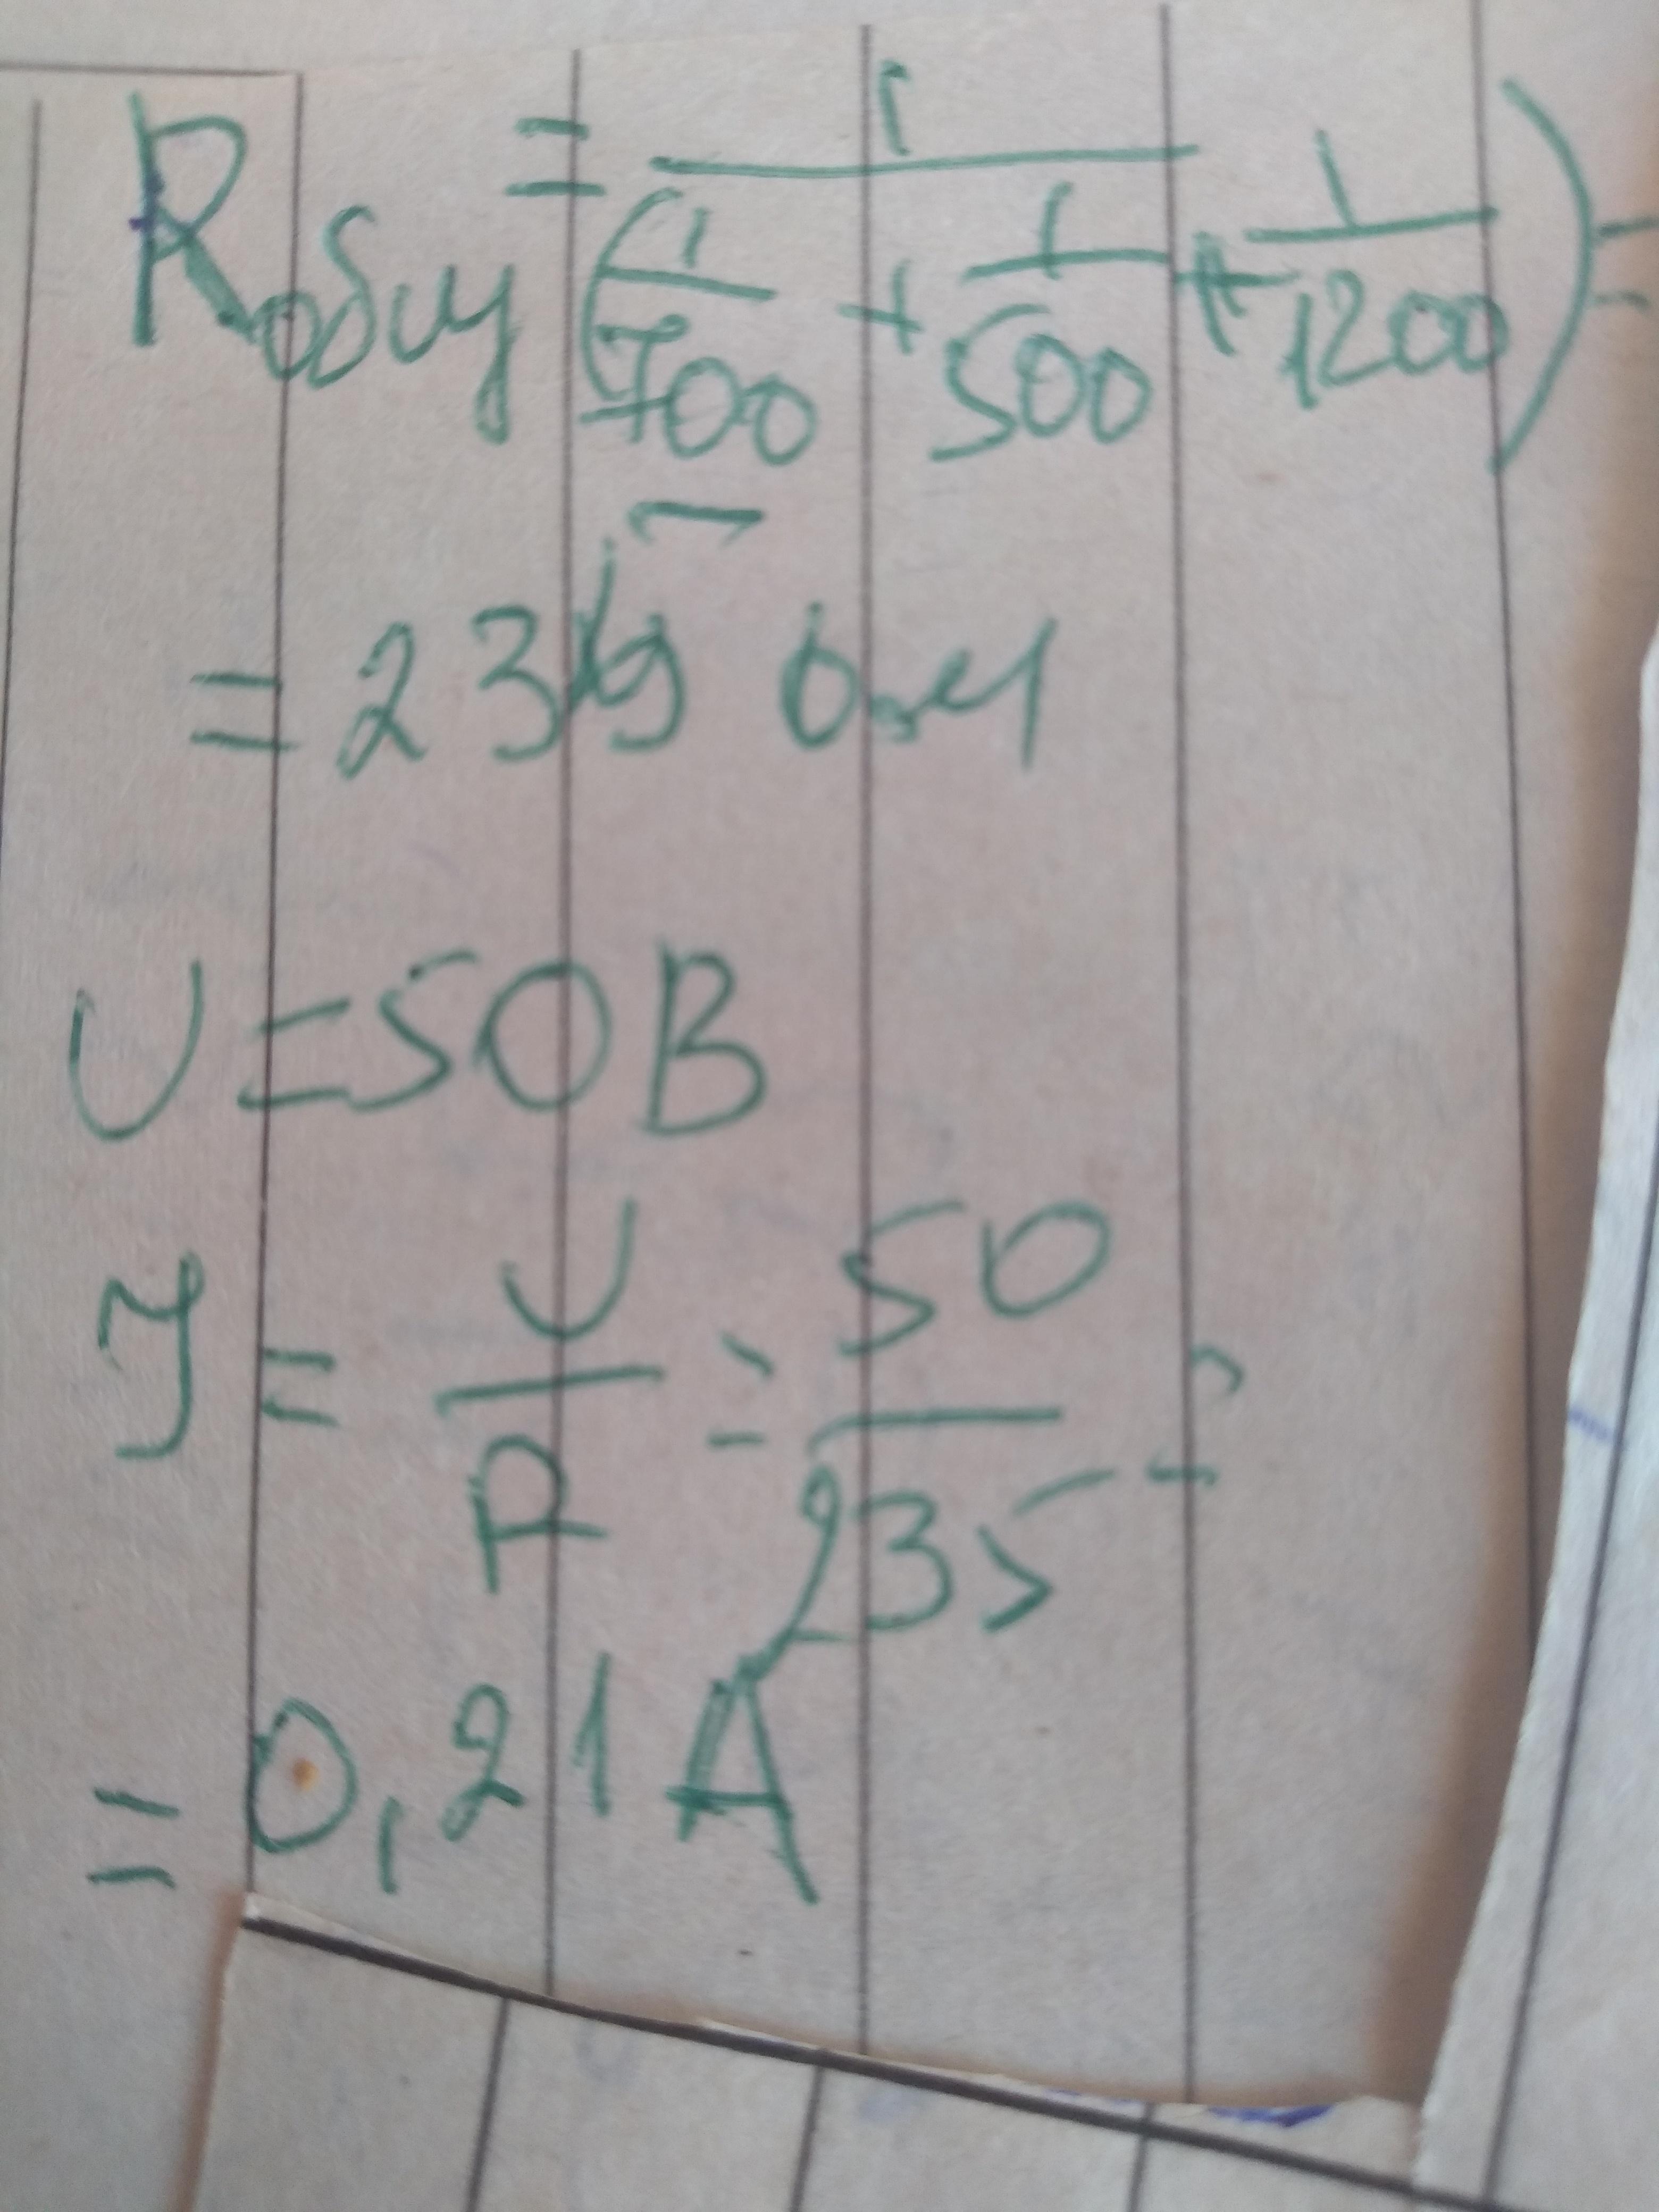 Rобщ = 1/(1/700 + 1/500 + 1/1200) =
= 235 Ом
U = 50 В
I = U/R = 50/235 =
= 0,21 А